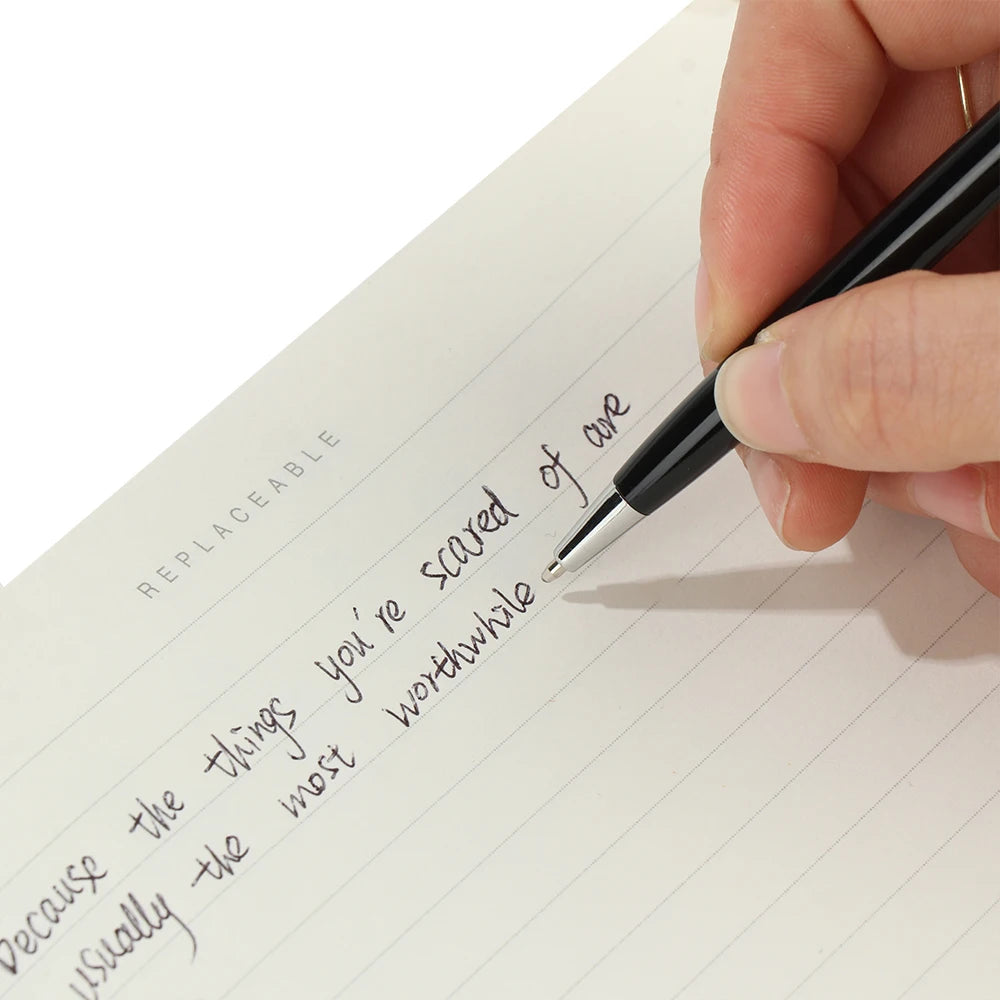 REPLACEABLE
Because the things you're scared of are
usually the most worthwhile